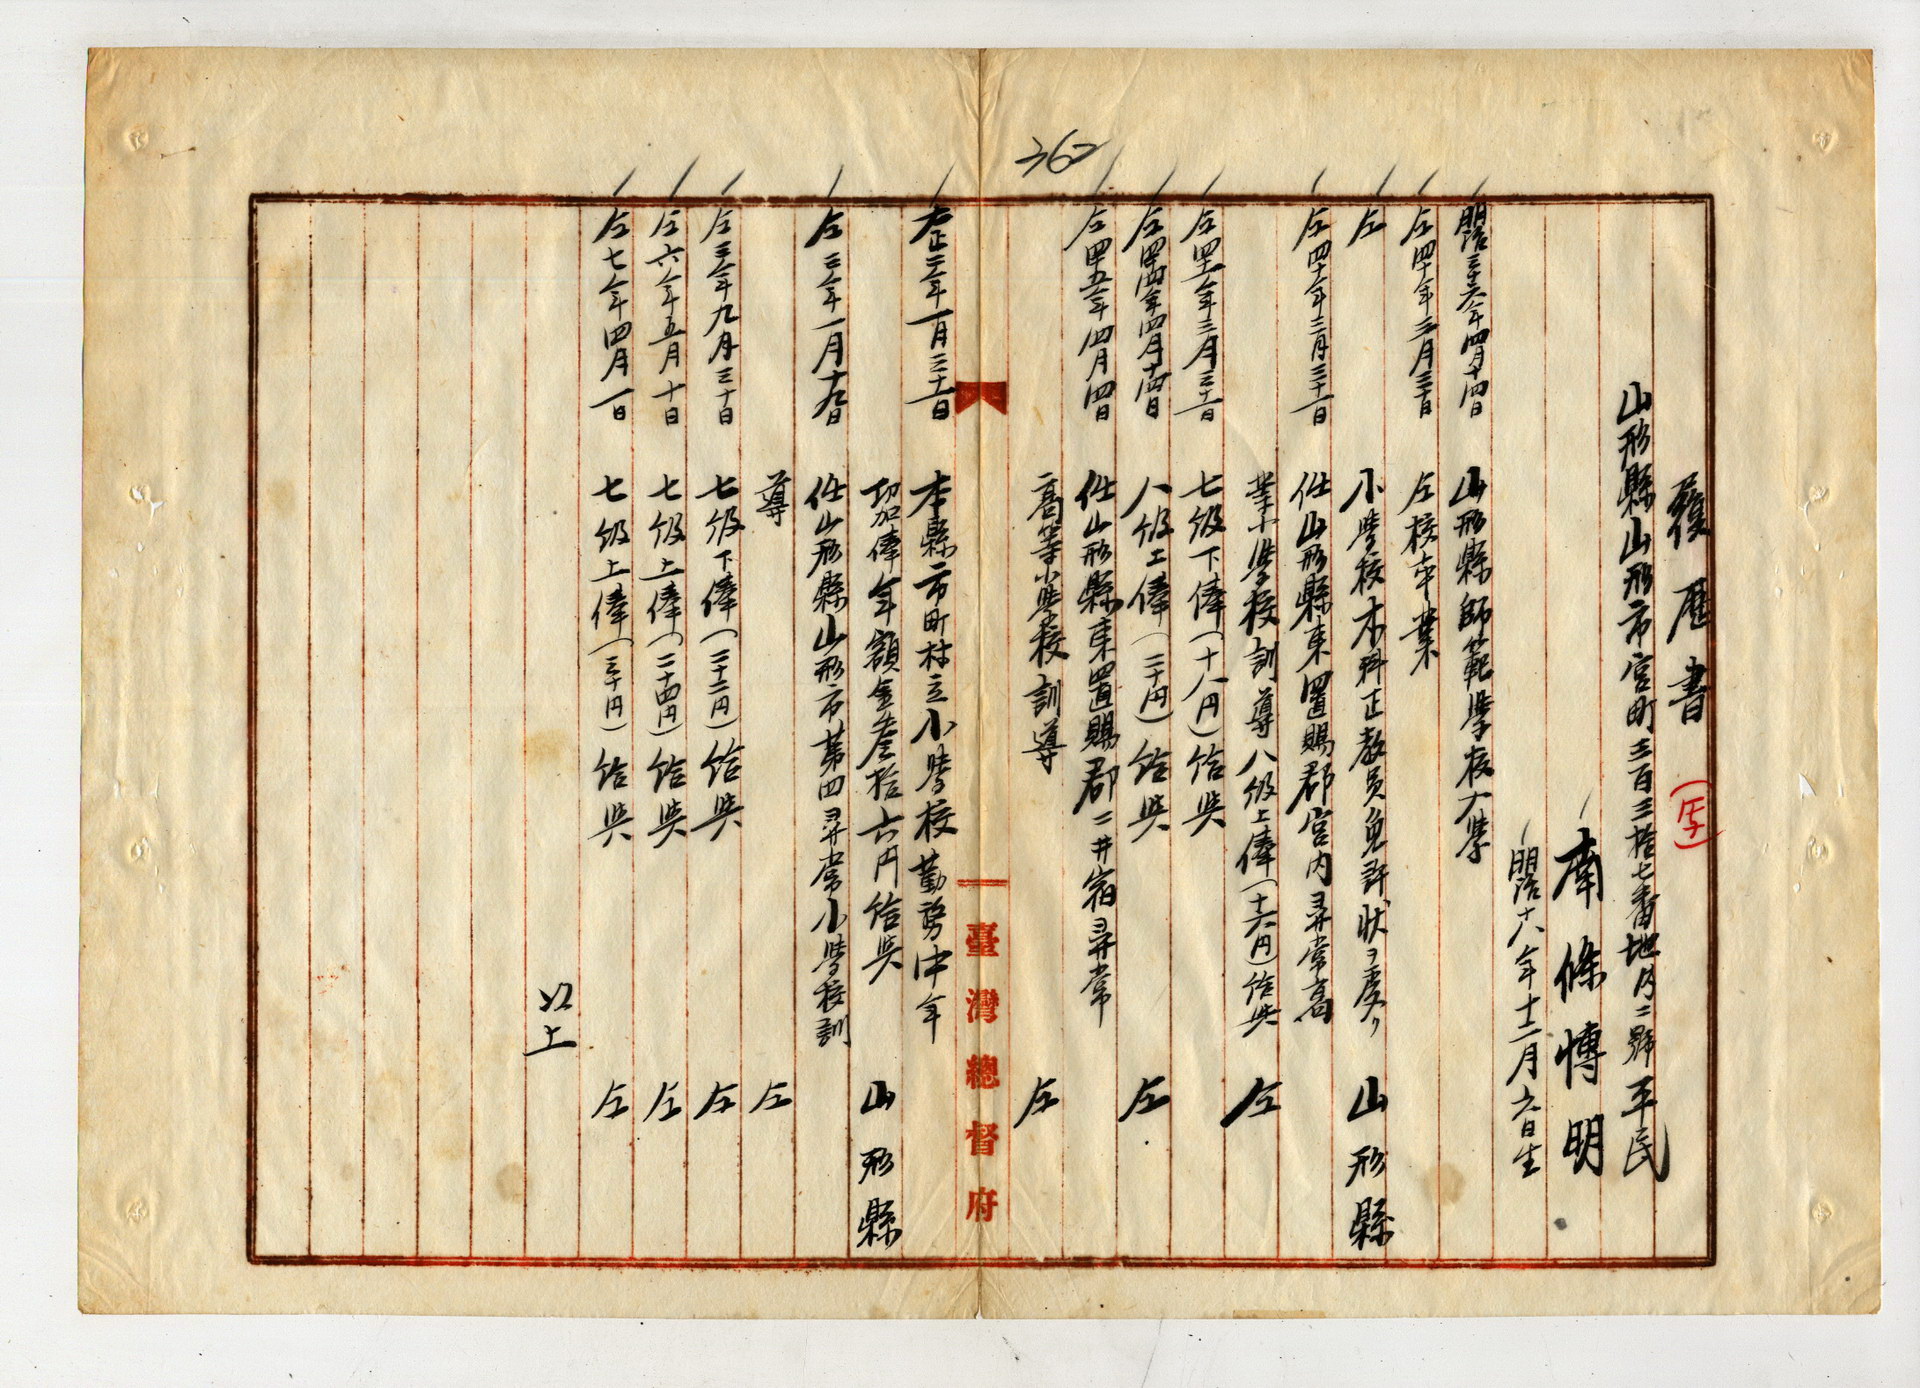 履歴書
(写)
山形縣山形市宮町三百三拾七番地ノ二號平民
南條博明
明治十八年十二月六日生
明治三十六年四月十四日 山形縣師範學校入學
仝四十年三月三十日 仝校卒業
仝 小學校本科正教員免許状ヲ受ク 山形縣
仝四十年三月三十一日 任山形縣東置賜郡宮内尋常高
等小學校訓導八級上俸(十六円)給與 仝
仝四十一年三月三十一日 七級下俸(十八円)給與
仝四十四年四月十四日 八級上俸(二十円)給與 仝
仝四十五年四月四日 任山形縣東置賜郡二井宿尋常
高等小學校訓導 仝
大正二年一月三十一日 本縣市町村立小學校勤務中年
功加俸年額金叁拾六円給與 山形縣
仝三年一月十九日 任山形縣山形市第四尋常小學校訓
導 仝
仝三年九月三十日 七級下俸(二十二円)給與 仝
仝六年五月十日 七級上俸(二十四円)給與 仝
仝七年四月一日 七級上俸(三十円)給與 仝
以上
臺灣總督府
362